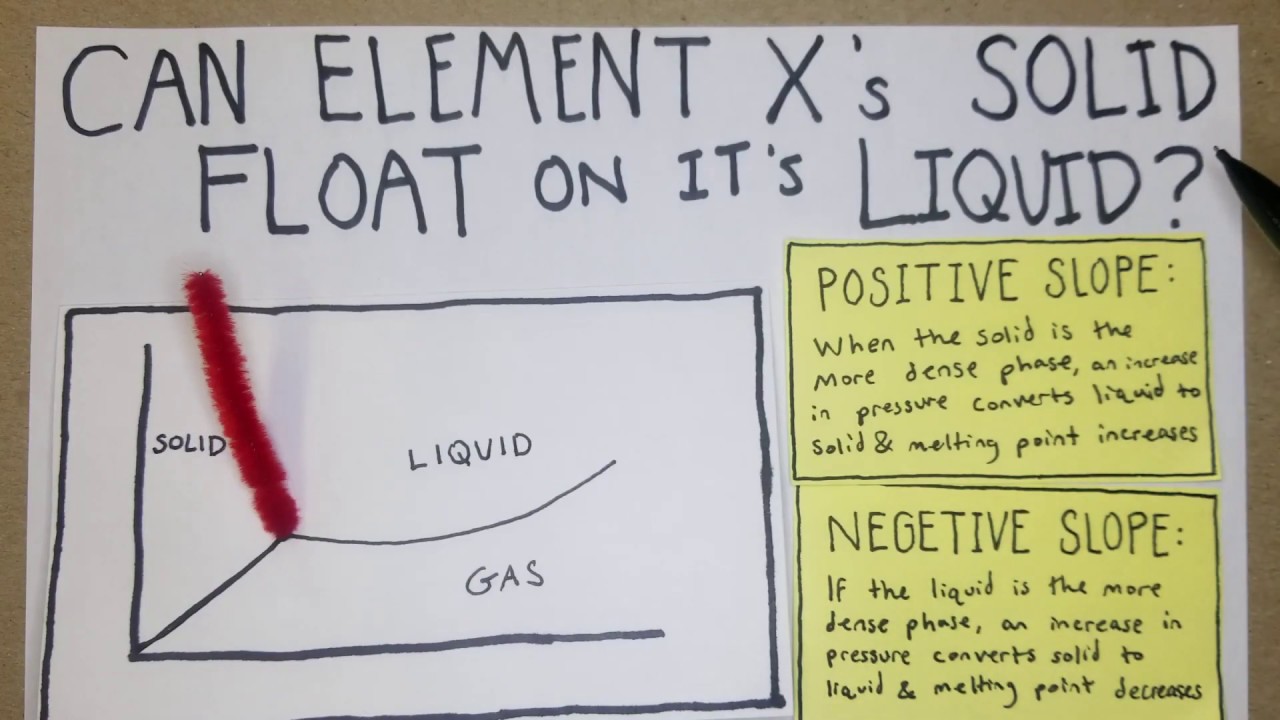 CAN ELEMENT X's SOLID
FLOAT ON IT's LIQUID?
SOLID
LIQUID
GAS
POSITIVE SLOPE:
When the solid is the
more dense phase, an increase
in pressure converts liquid to
solid & melting point increases
NEGETIVE SLOPE:
If the liquid is the more
dense phase, an increase in
pressure converts solid to
liquid & melting point decreases